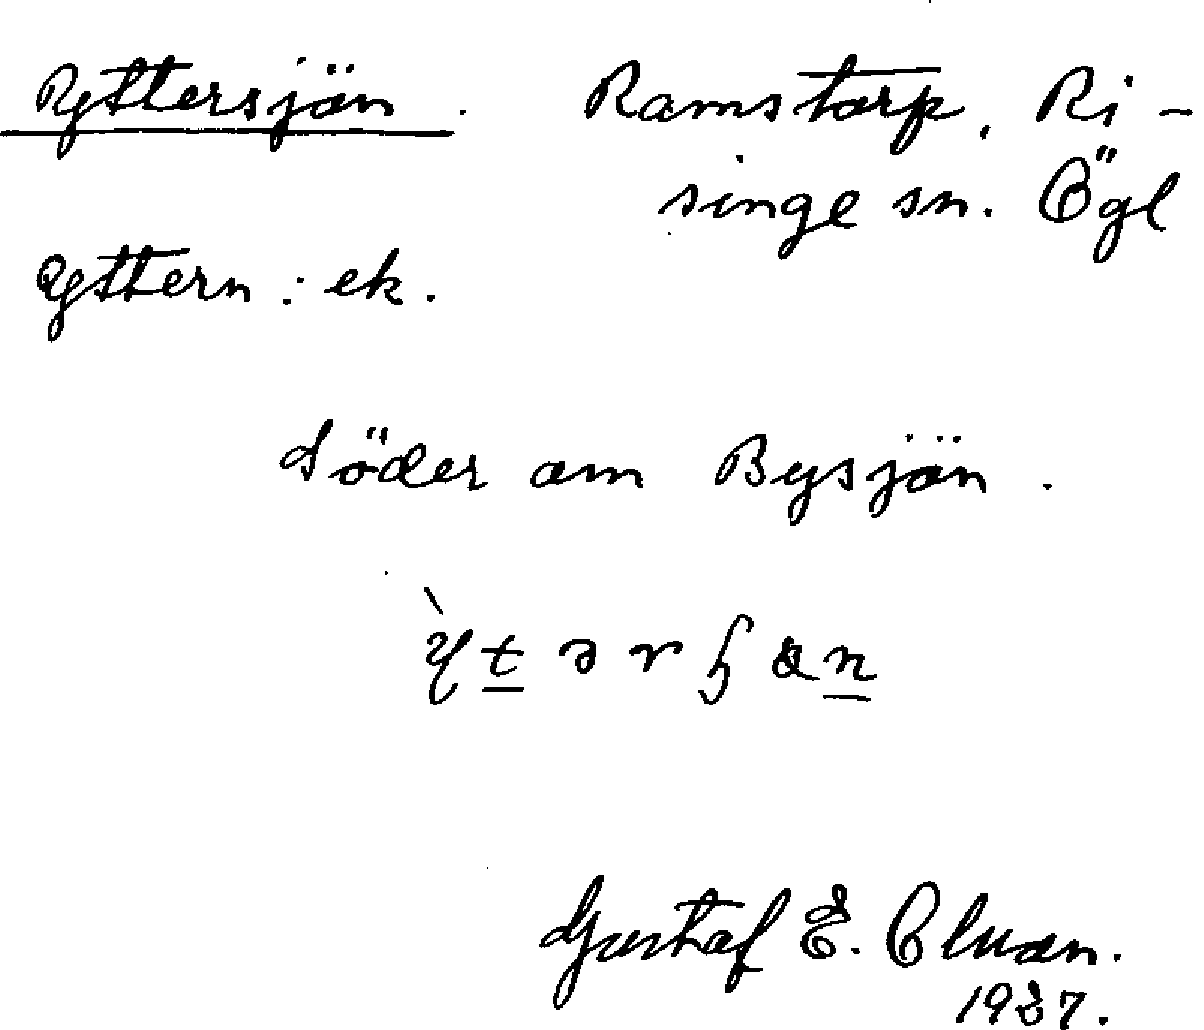 Yttersjön. Ramstorp, Ri-
singe sn. Ögl
Yttern: ek.
Söder om Bysjön.
Gustaf E.
1937.